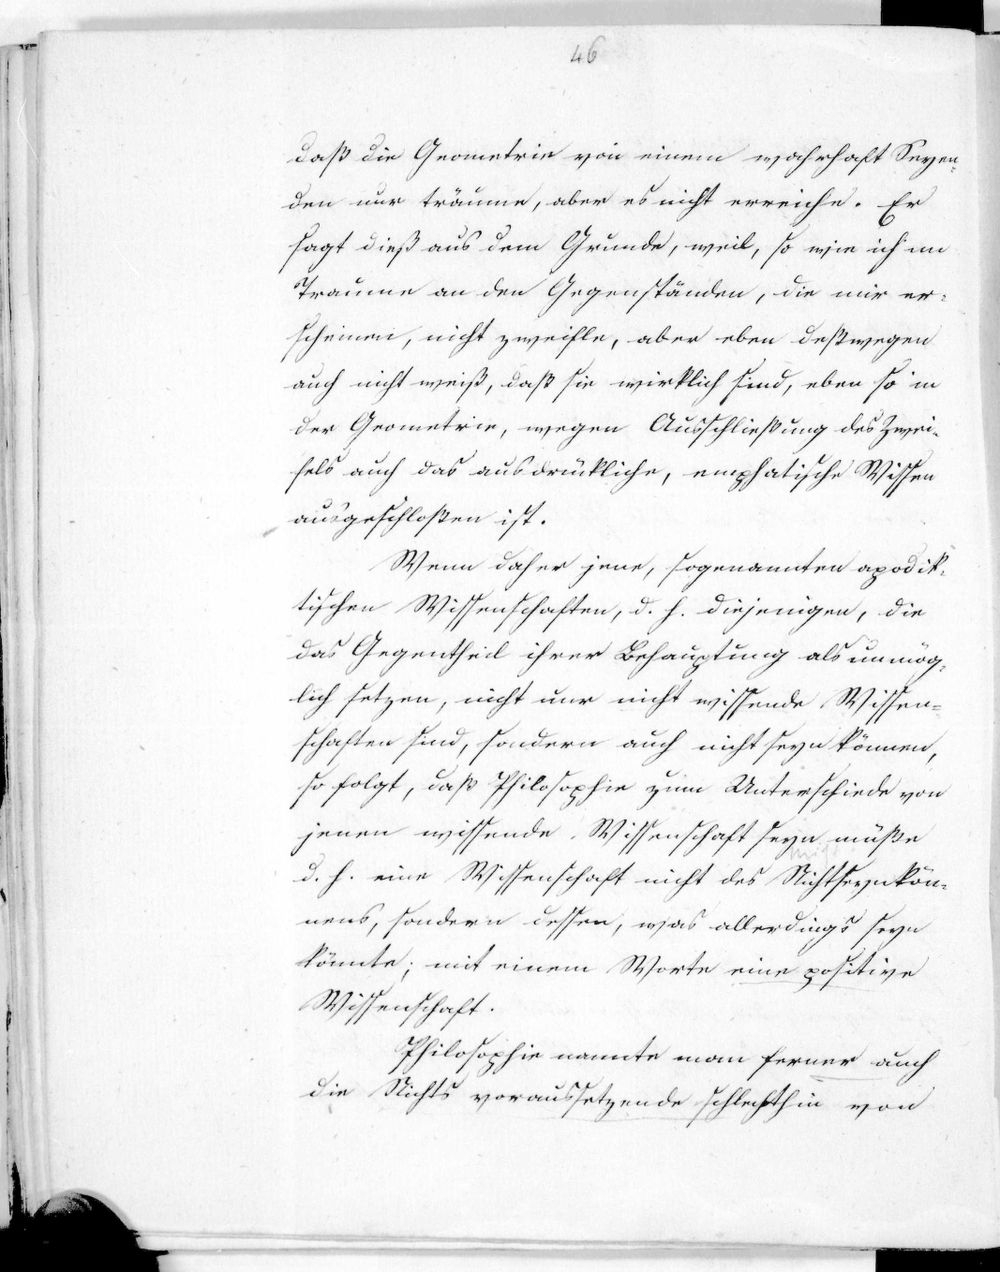 46
daß die Geometrie von einem wahrhaft Seyen-
den nur träume, aber es nicht erreiche. Er
sagt dieß aus dem Grunde, weil, so wie ich im
Traume an den Gegenständen, die mir er-
scheinen, nicht zweifle, aber eben deßwegen
auch nicht weiß, daß sie wirklich sind, eben so in
der Geometrie, wegen Ausschließung des Zwei-
fels auch das ausdrükliche, emphatische Wissen
ausgeschloßen ist.
Wenn daher jene, sogenannten apodik-
tischen Wissenschaften, d. h. diejenigen, die
das Gegentheil ihrer Behauptung als unmög-
lich setzen, nicht nur nicht wissende Wissen-
schaften sind, sondern auch nicht seyn können,
so folgt, daß Philosophie zum Unterschiede von
jenen wissende Wissenschaft seyn müße
d. h. eine Wissenschaft nicht des Nichtseynkön-
nens, sondern dessen, was allerdings seyn
könnte; mit einem Worte eine positive
Wissenschaft.
Philosophie nannte man ferner auch
die Nichts voraussetzende schlechthin von